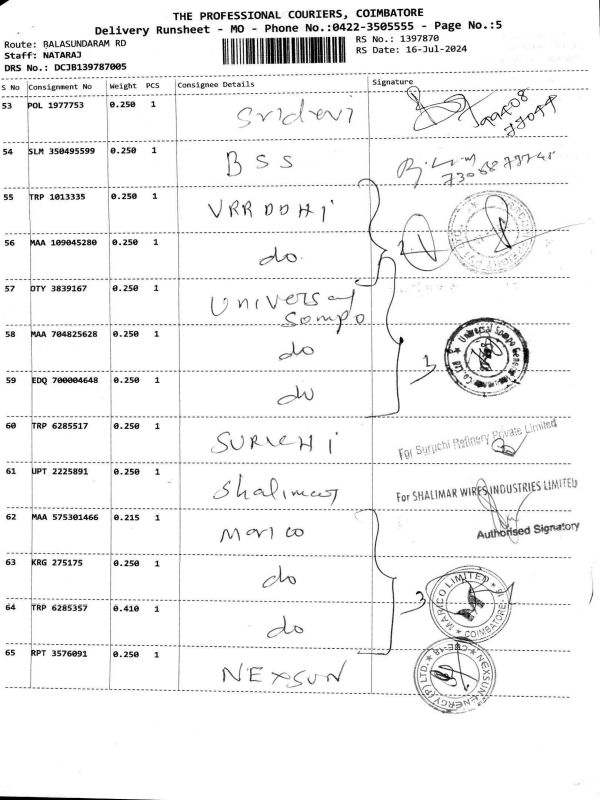 THE PROFESSIONAL COURIERS, COIMBATORE
Delivery Runsheet - MO - Phone No.:0422-3505555 - Page No.:5
Route: BALASUNDARAM RD
RS No.: 1397870
Staff: NATARAJ
RS Date: 16-Jul-2024
DRS No.: DCJB139787005
S No Consignment No Weight PCS Consignee Details Signature
53 POL 1977753 0.250 1 Sridevi
99408
77099
54 SLM 350495599 0.250 1 BSS
55 TRP 1013335 0.250 1 VRRDDHI
56 MAA 109045280 0.250 1 do
57 DTY 3839167 0.250 1 Universal
Sompo
58 MAA 704825628 0.250 1 do
59 EDQ 700004648 0.250 1 do
60 TRP 6285517 0.250 1 SURICHI
For Suruchi Refinery Private Limited
61 UPT 2225891 0.250 1 Shalimar
For SHALIMAR WIRES INDUSTRIES LIMITED
62 MAA 575301466 0.215 1 Marico
Authorised Signatory
63 KRG 275175 0.250 1 do
3
MARICO LIMITED * COIMBATORE
64 TRP 6285357 0.410 1 do
65 RPT 3576091 0.250 1 NEXSUN
NEXSUN ENERGY (P) LTD. * CBE-18 *